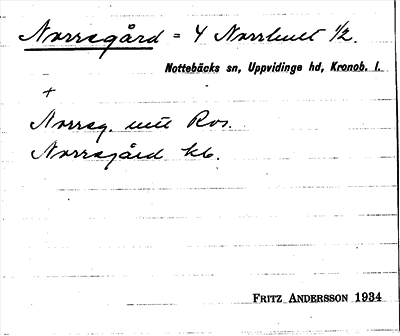 Norregård = 4 Norrhult 1/2.
Nottebäcks sn, Uppvidinge hd, Kronob. l.
+
Norreg. Ros.
Norregård kb.
FRITZ ANDERSSON 1934